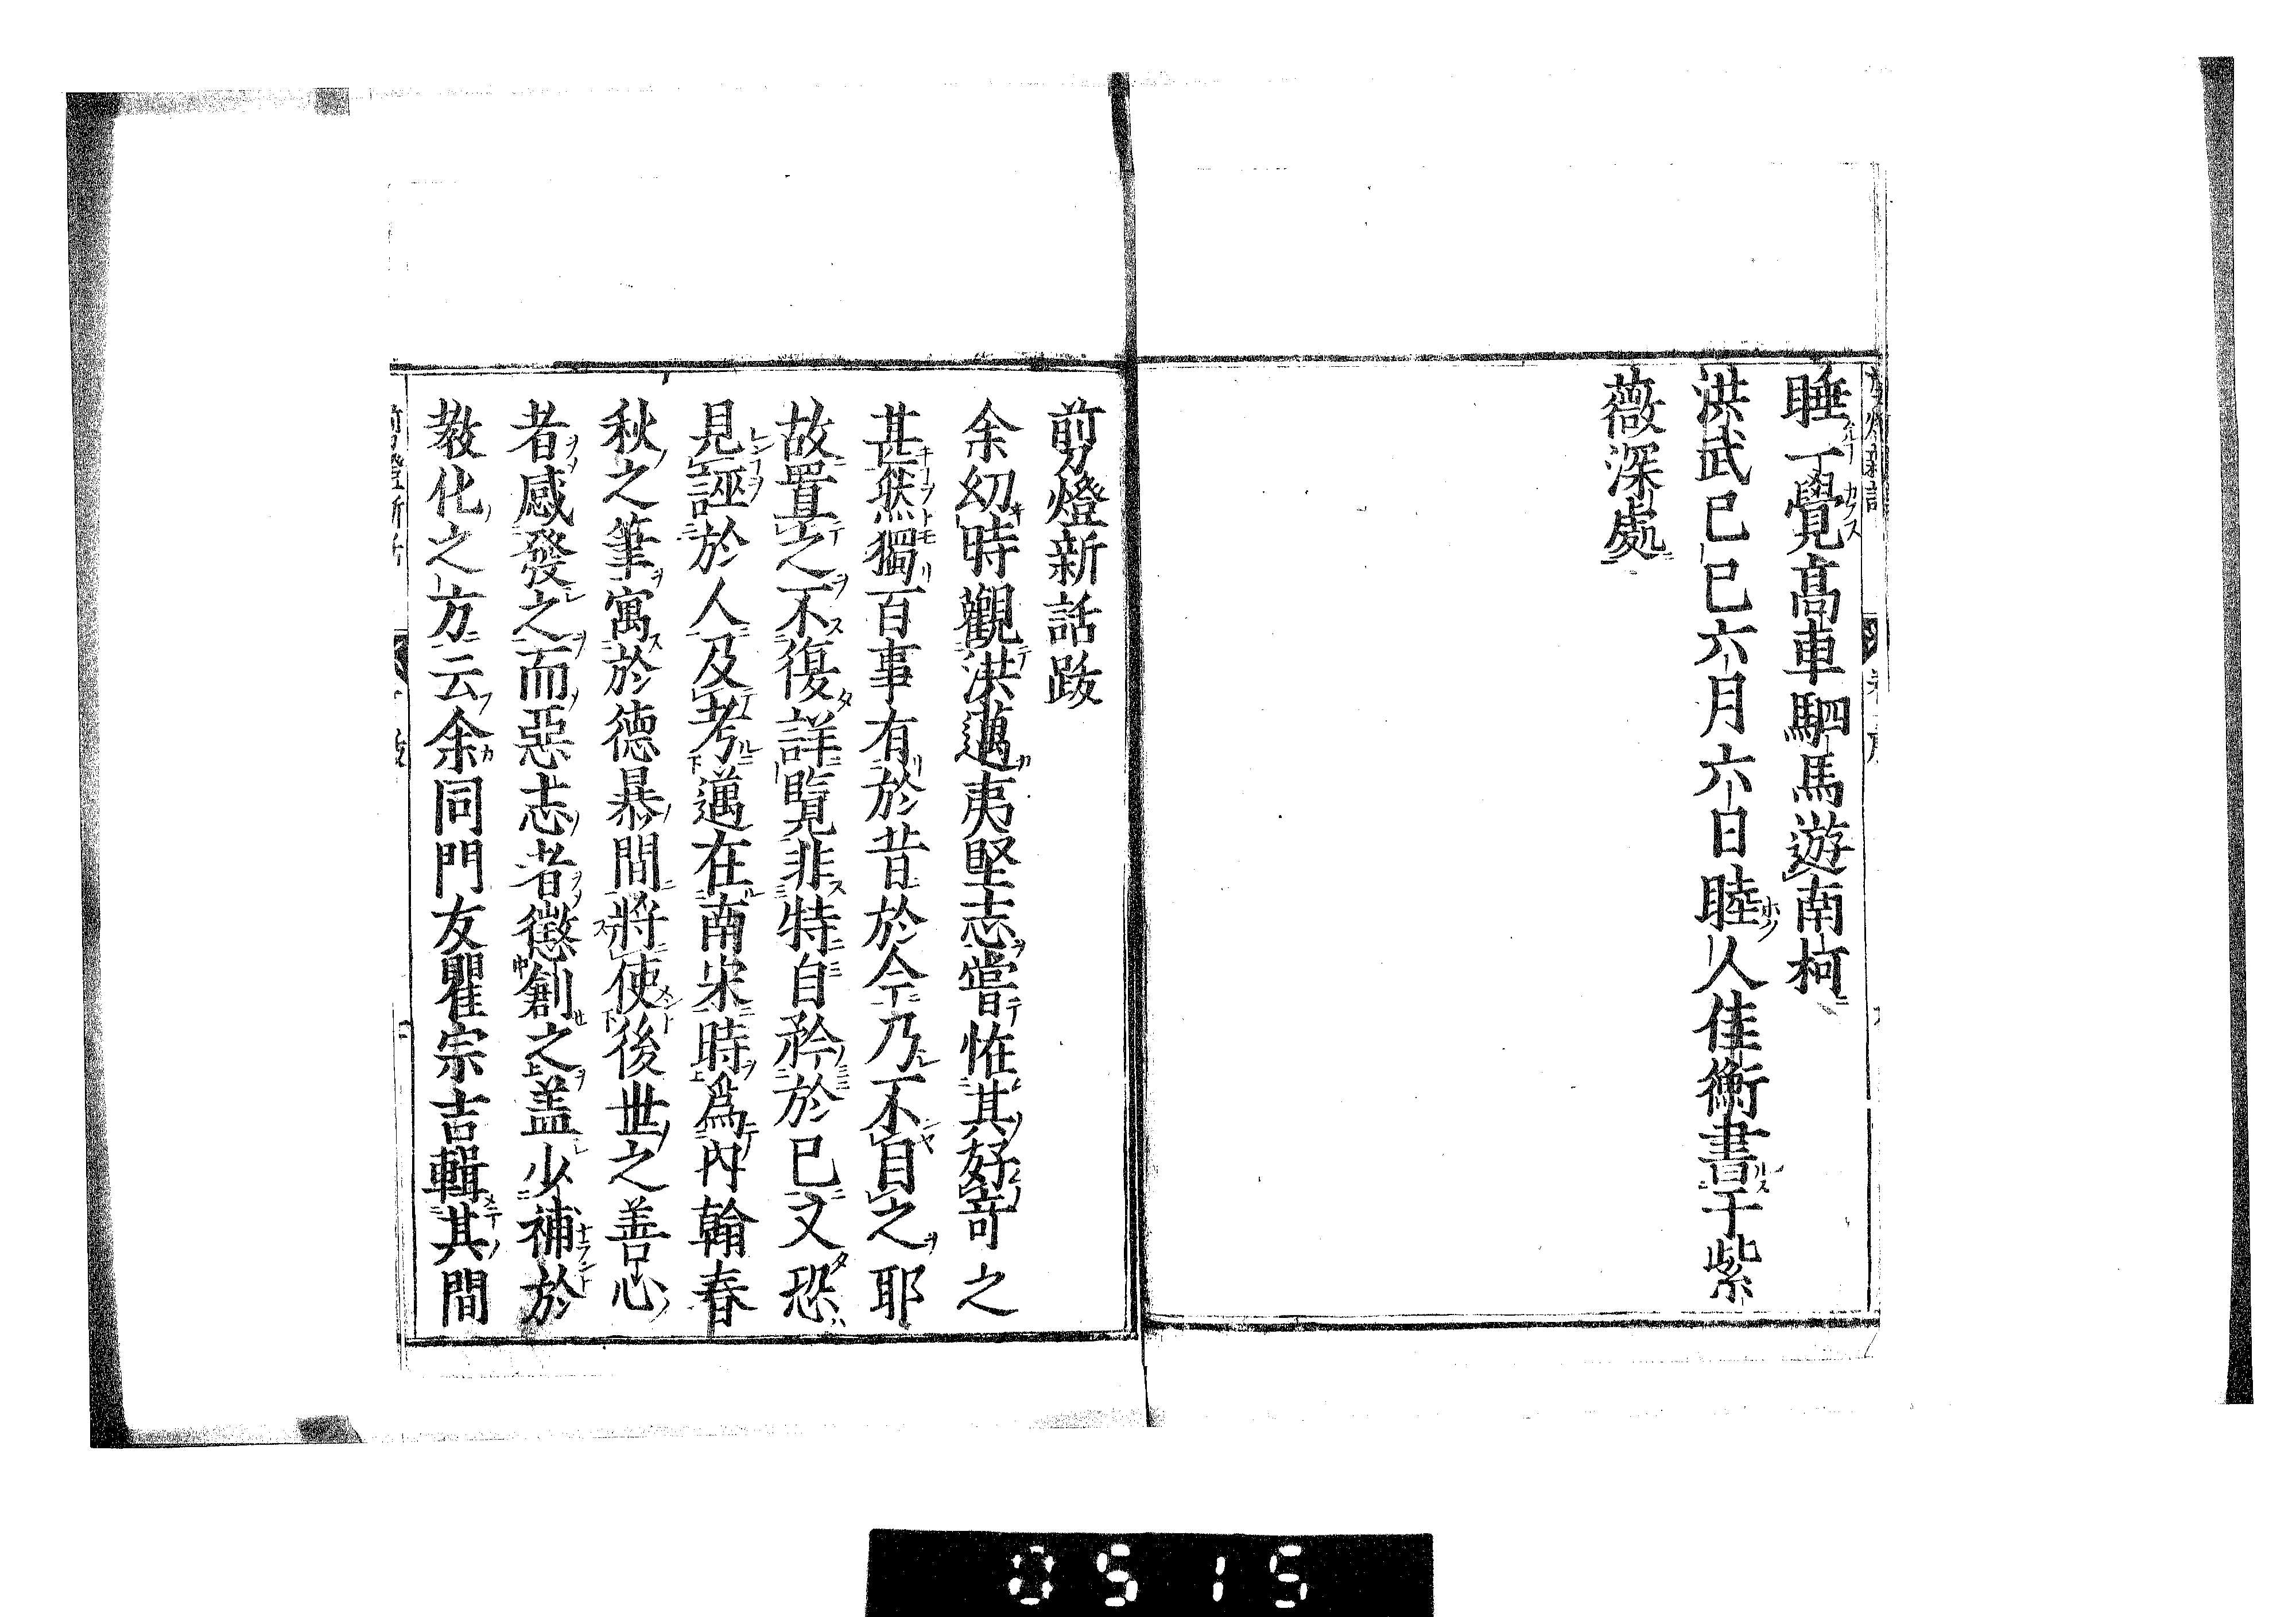 睡一覺高車駟馬遊南柯
洪武己巳六月六日睦人佳衡書于紫
薇深處
剪燈新話跋
余幼時觀洪邁夷堅志嘗恠其好竒之
甚然獨百事有於昔於今乃不自之耶
故置之不復詳覽非特自矜於已又恐
見誣於人及考邁在南宋時爲內翰春
秋之筆寓於德㬥間將使後世之善心
者感發之而惡志者懲創之盖少補於
教化之方云余同門友瞿宗吉輯其間
0515